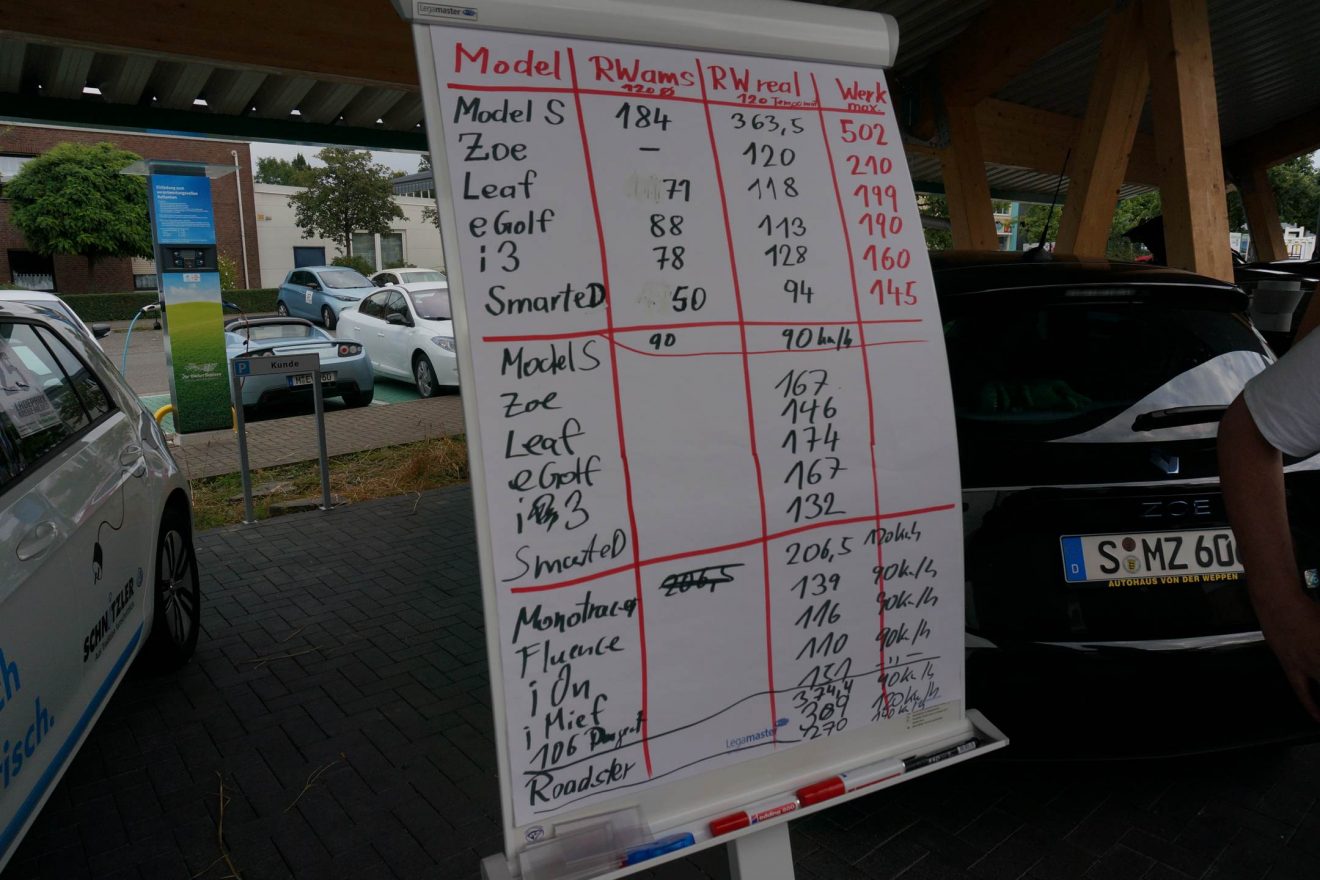 Legamaster
Model RWams RW real Werk
120 Ø 120 Tempomat max.
Model S 184 363,5 502
Zoe – 120 210
Leaf 71 118 199
eGolf 88 113 190
i3 78 128 160
SmarteD 50 94 145
90 90 km/h
Model S
Zoe 167
Leaf 146
eGolf 174
i 3 167
SmarteD 132
Monotracer 206,5 206,5 120km/h
Fluence 139 90km/h
iOn 116 90km/h
iMief 110 90km/h
106 151 – " –
Roadster 374,4 90km/h
309 120km/h
270
Legamaster
edding
P Kunde
SCHNITZLER
ZOE
S MZ 60
D
AUTOHAUS VON DER WEPPEN